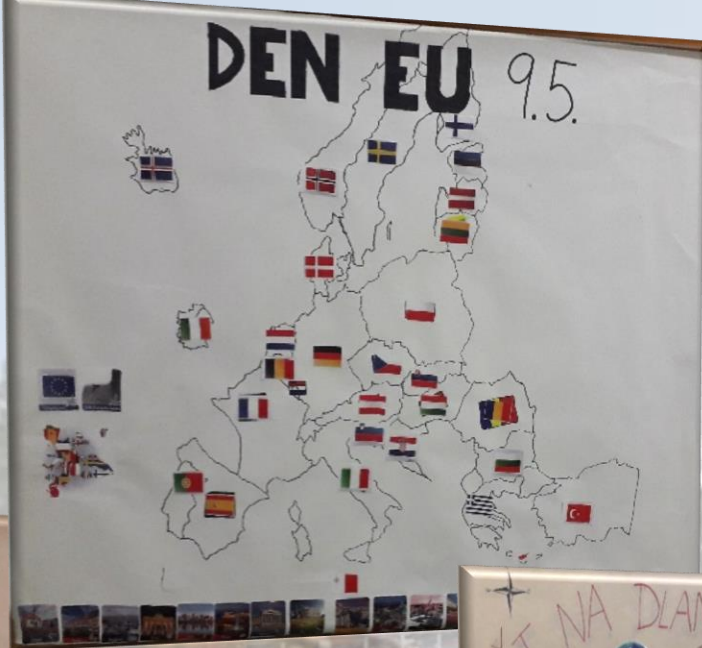 DEN EU 9.5.
NA DLAN